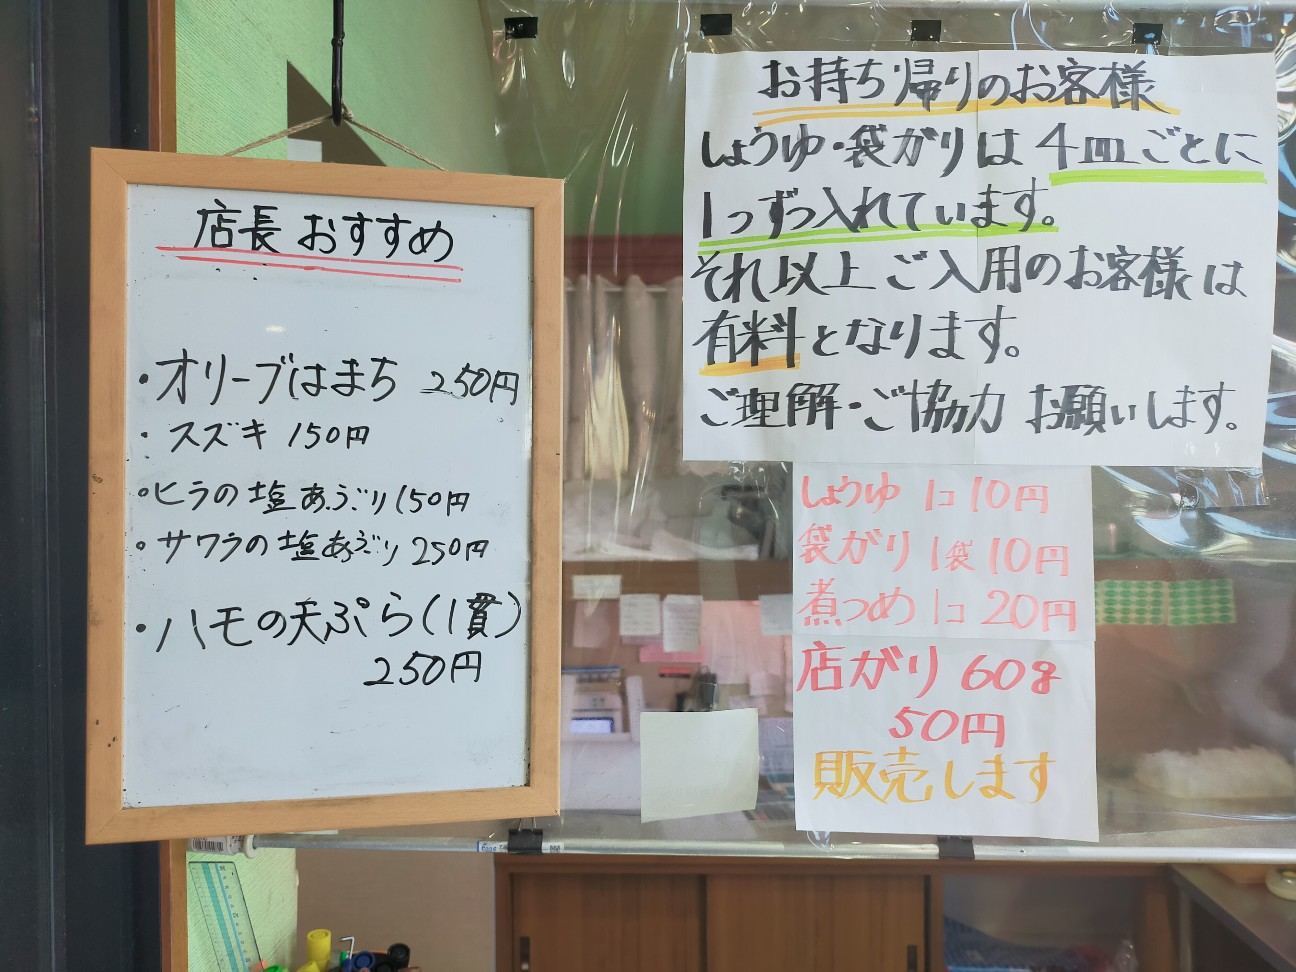 店長おすすめ
・オリーブはまち 250円
・スズキ 150円
・ヒラの塩あぶり 150円
・サワラの塩あぶり 250円
・ハモの天ぷら(1貫)
250円
お持ち帰りのお客様
しょうゆ・袋がりは4皿ごとに
1つずつ入れています。
それ以上ご入用のお客様は
有料となります。
ご理解・ご協力お願いします。
しょうゆ 1コ 10円
袋がり 1袋 10円
煮つめ 1コ 20円
店がり 60g
50円
販売します